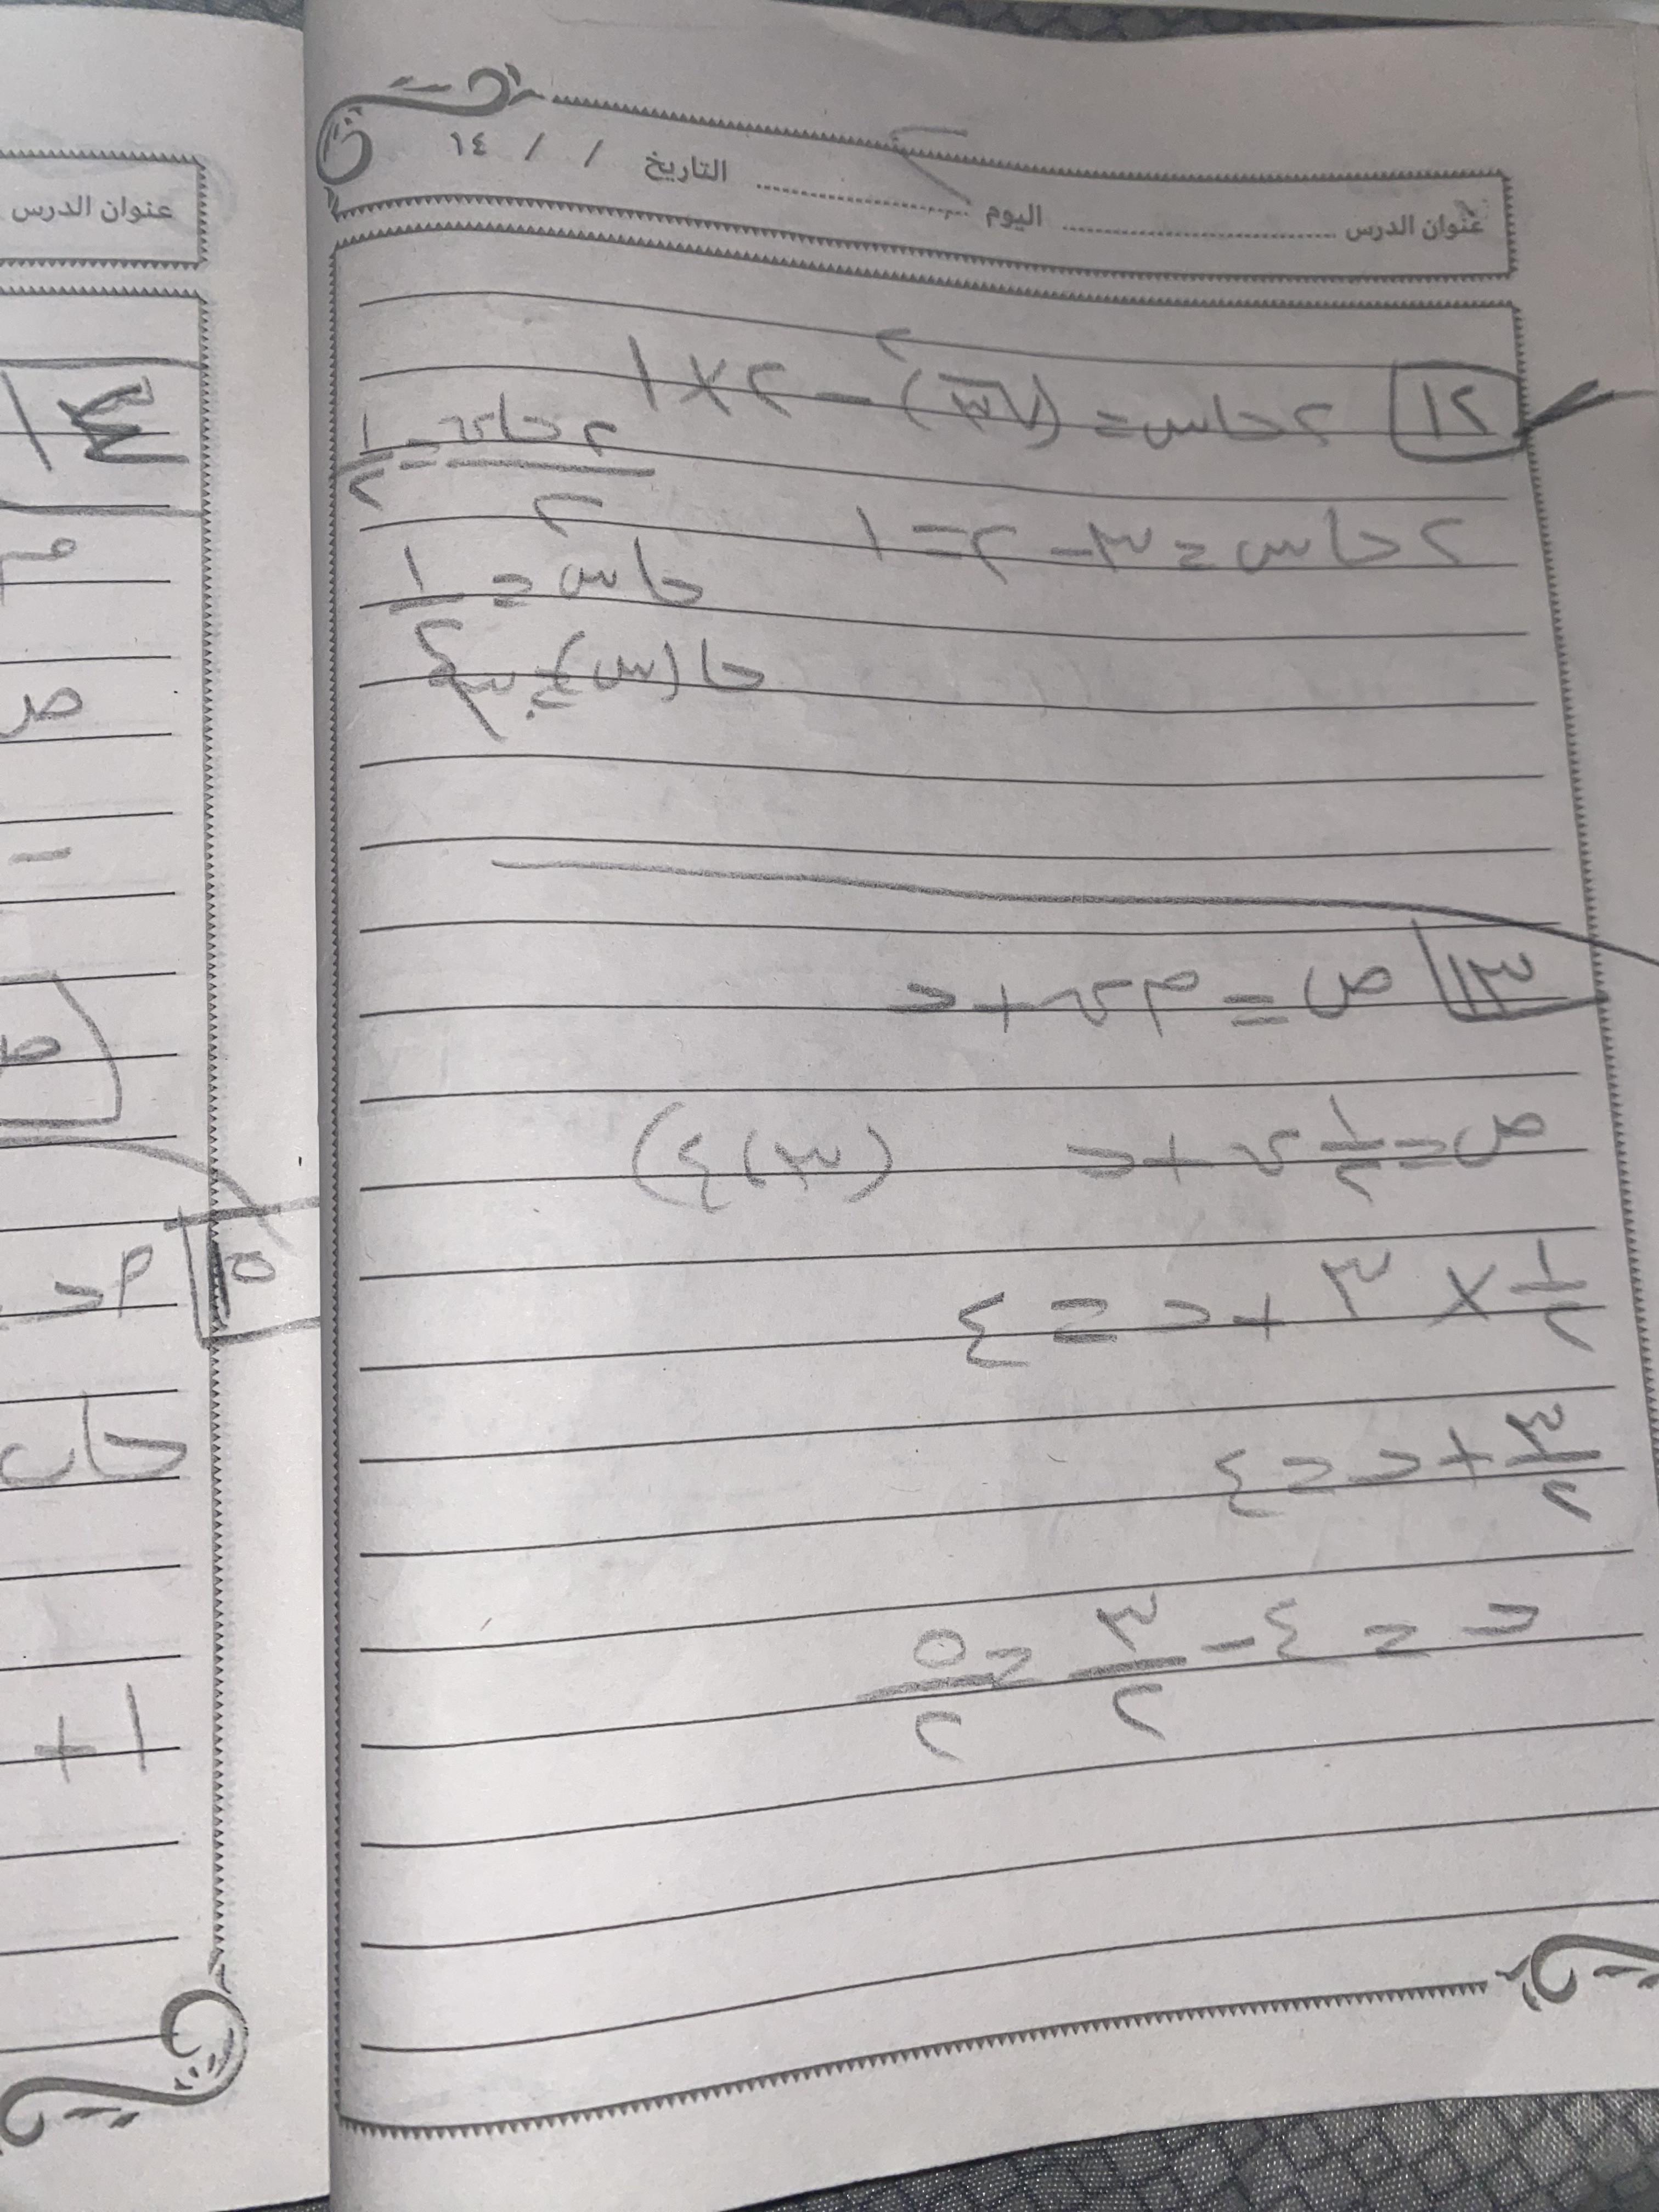 عنوان الدرس ........ اليوم ........ التاريخ / / ١٤
١٢ ٢ حاس = (√٣)² - ٢ × ١
٢ حاس = ٣ - ٢ = ١
٢ حاس / ٢ = ١ / ٢
حاس = ١ / ٢
حا (س) = ٣٠
١٣ ص = م س + حـ
ص = ١/٢ س + حـ (٣، ٤)
١/٢ × ٣ + حـ = ٤
٣/٢ + حـ = ٤
حـ = ٤ - ٣/٢ = ٥/٢
عنوان الدرس
١٤
ص
-
ص
١٥ م حـ
حاب
١ +